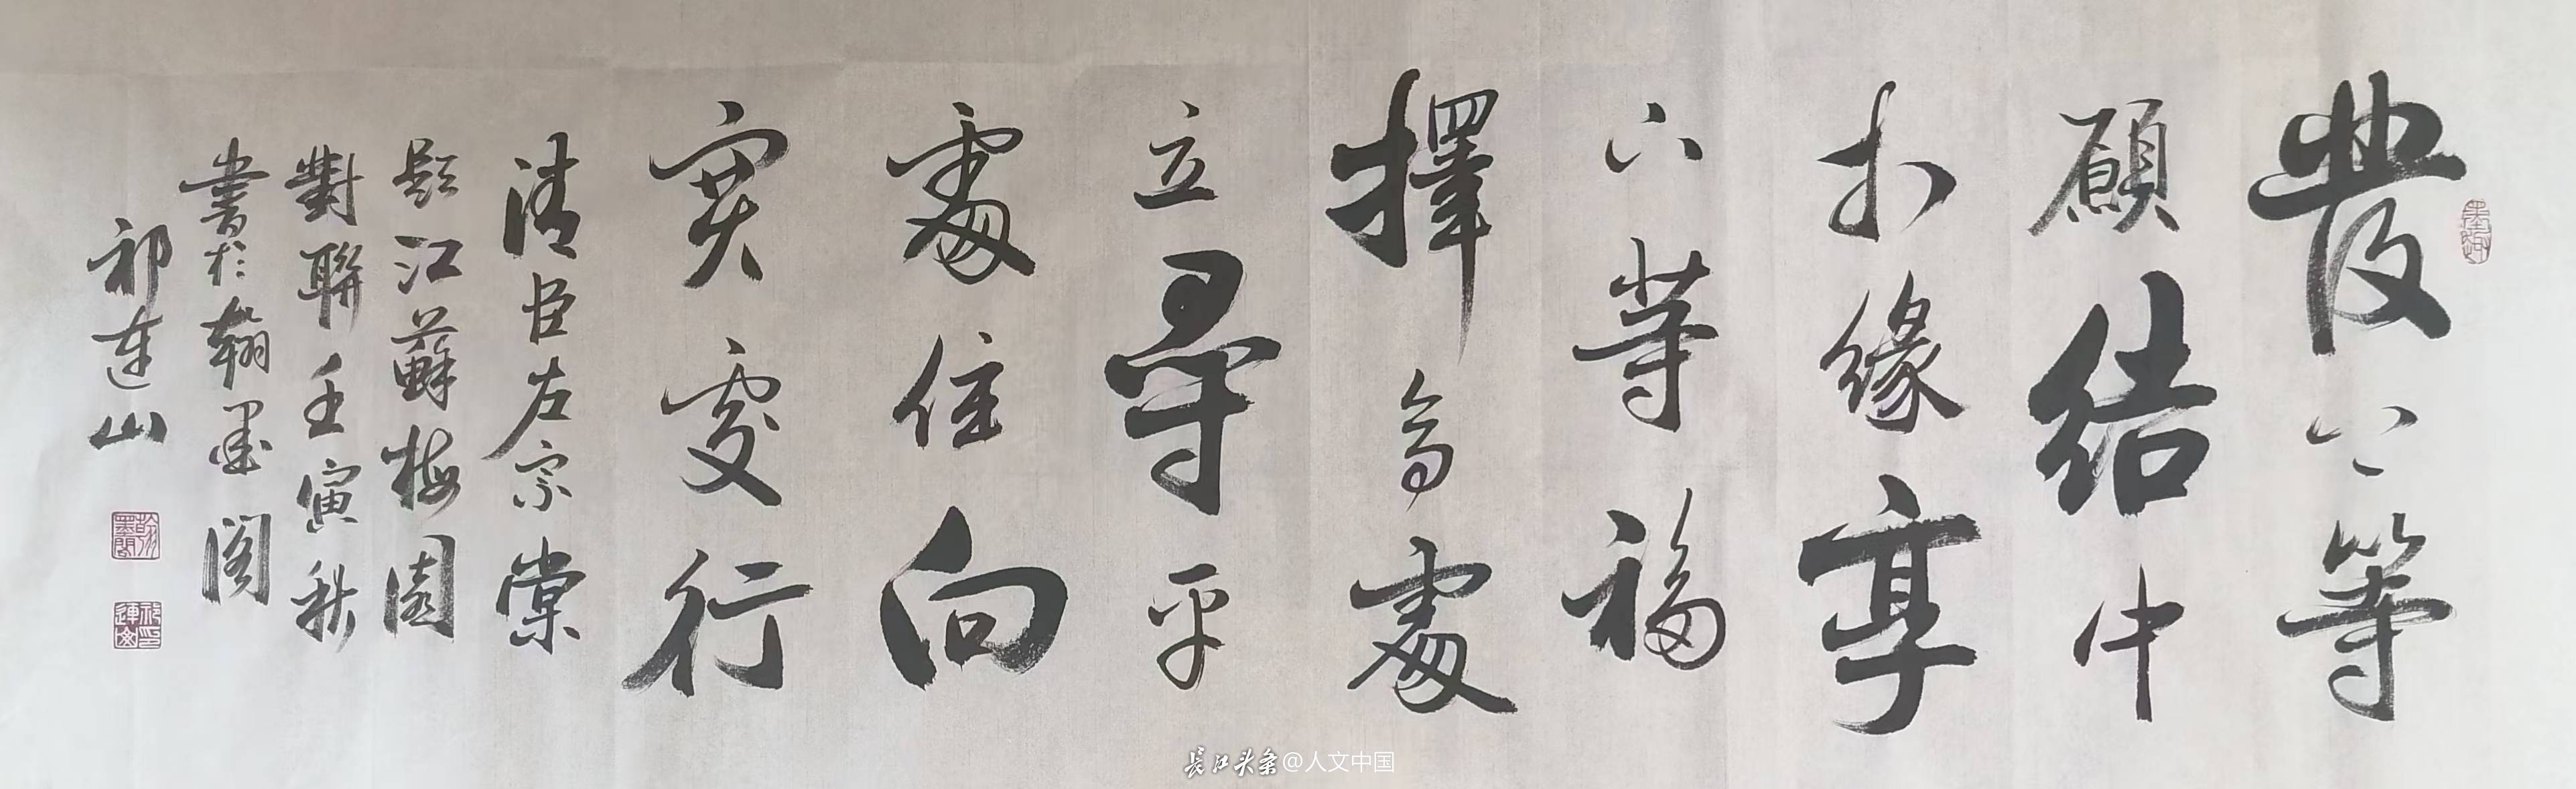 發上等
願結中
等緣享
下等福
擇高處
立尋平
處住向
寬處行
清臣左宗棠
題江蘇梅園
對聯壬寅秋
書於翰墨閣
祁連山
翰墨閣
祁連山印
長江头条@人文中国